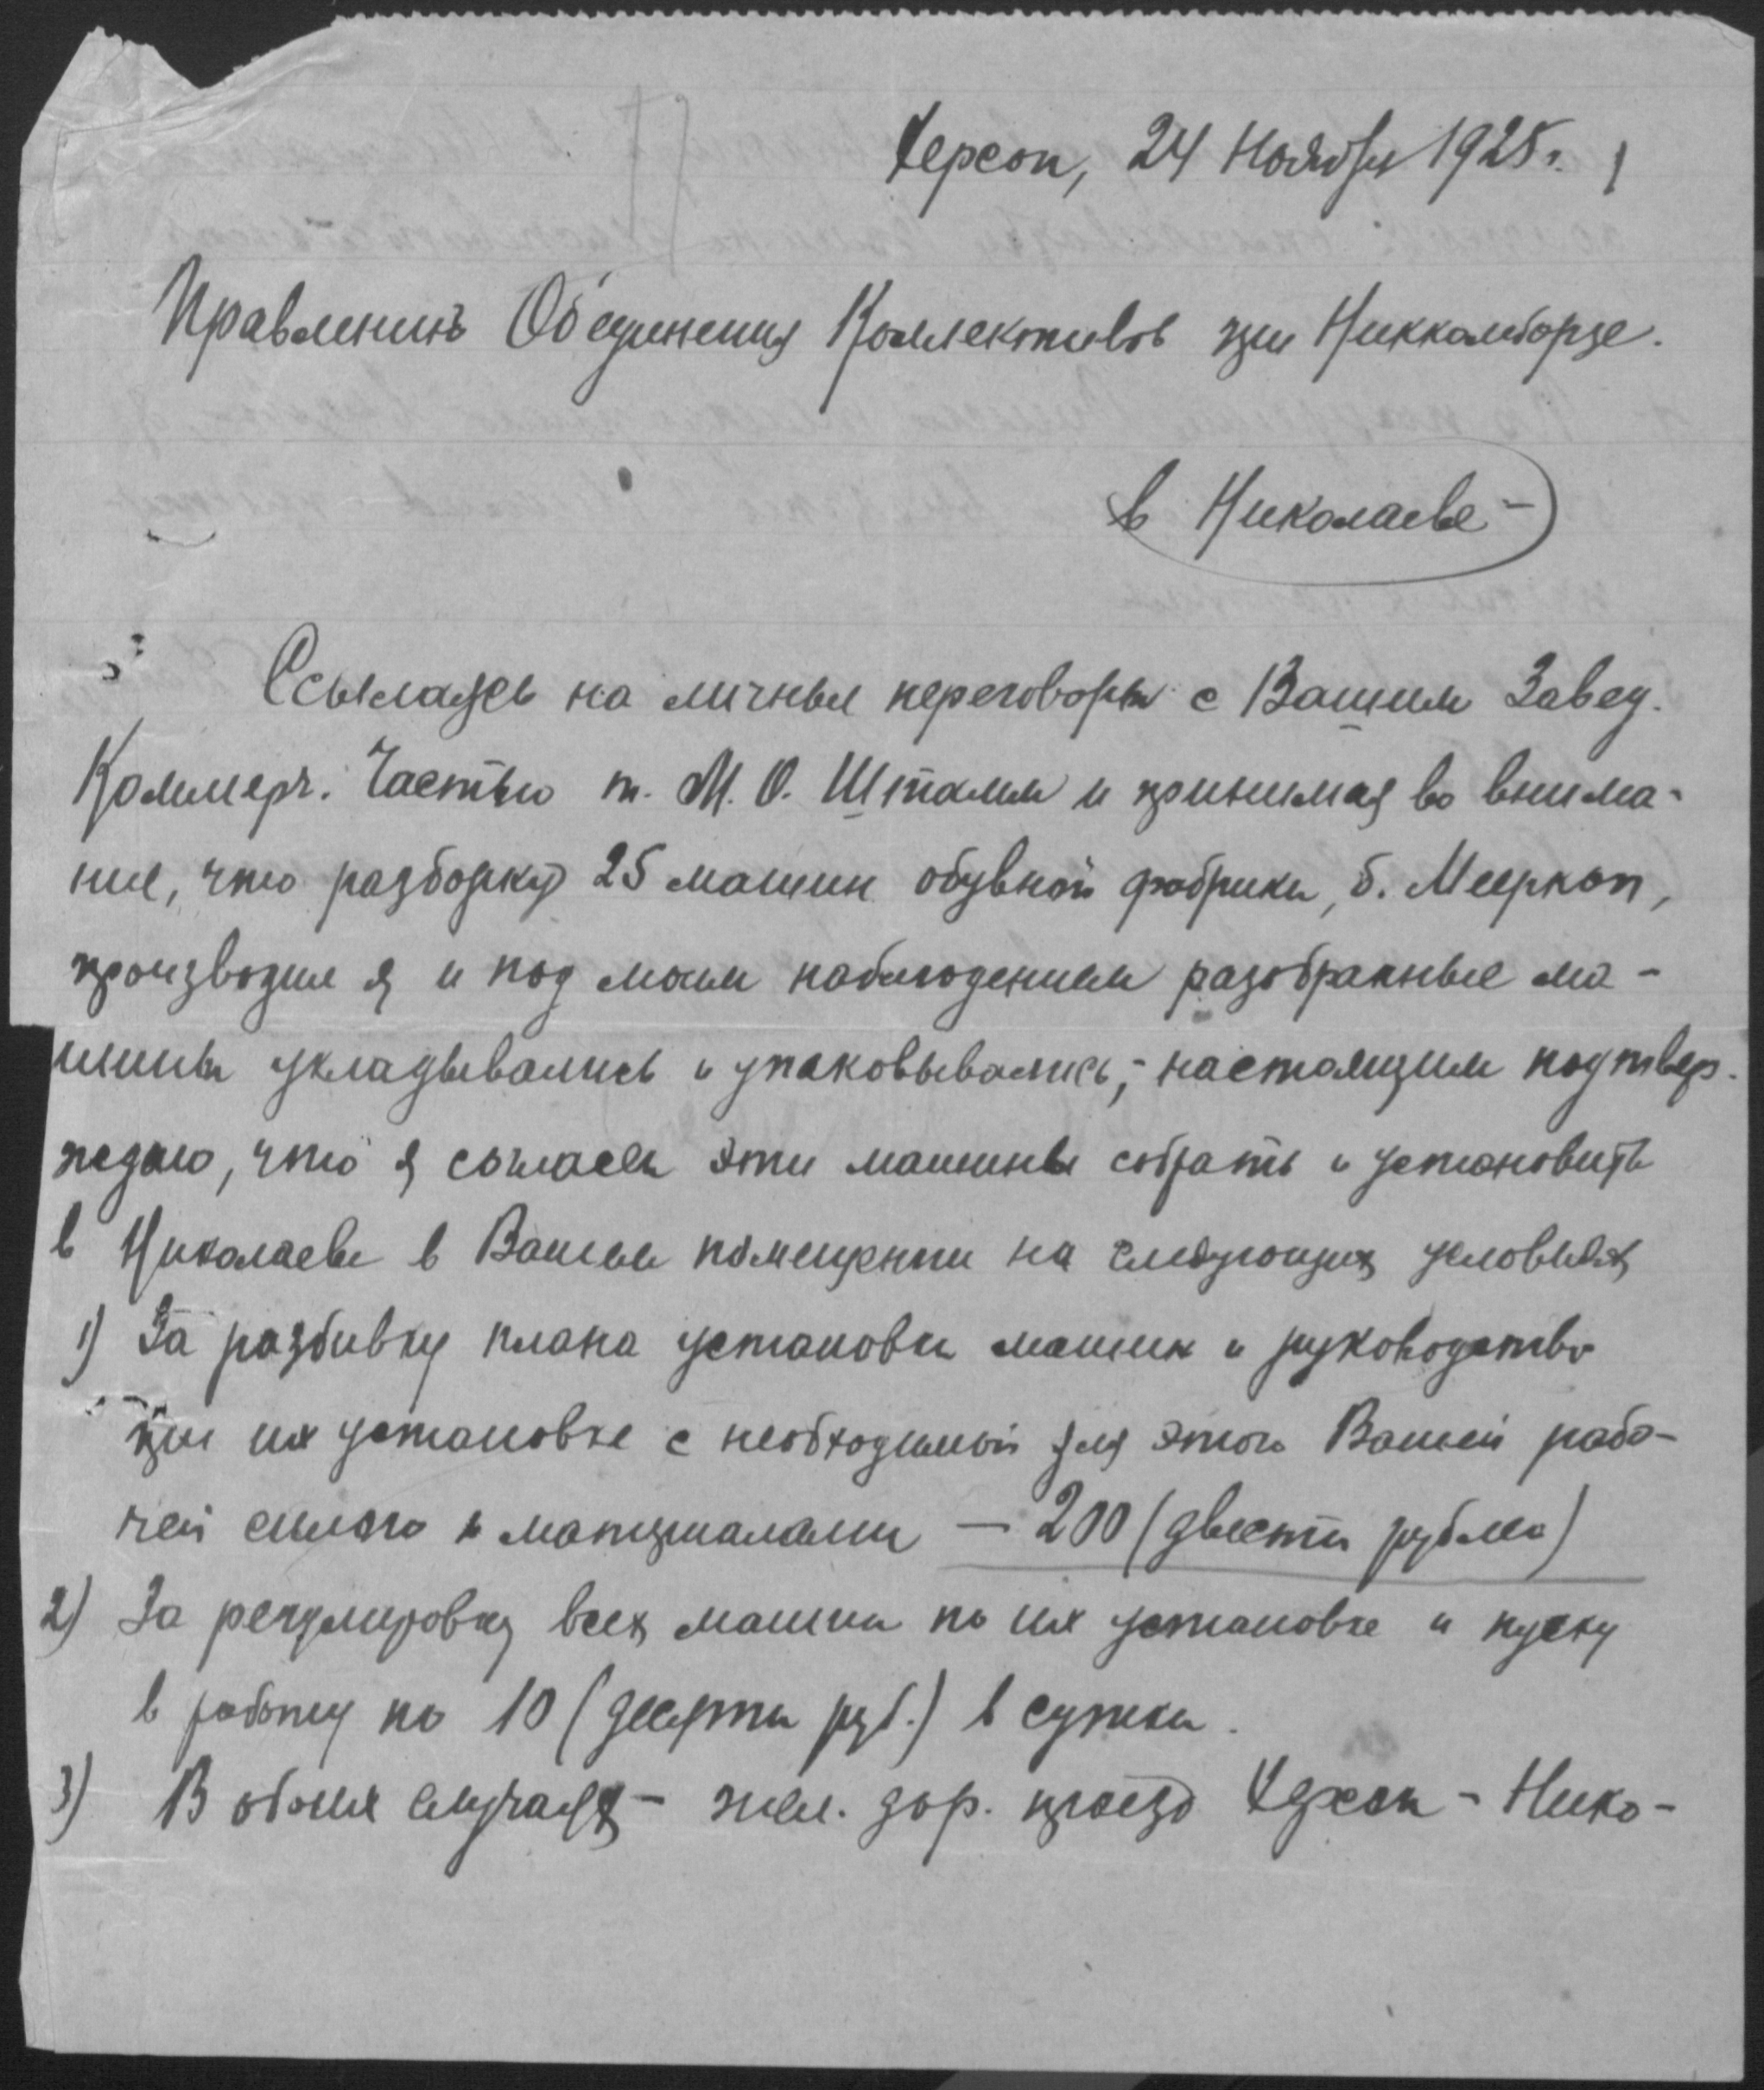 Херсон, 24 Ноября 1925 г.
Правлению Об'единения Коллективов при Никкомборзе.
в Николаеве
Ссылаясь на личные переговоры с Вашим Завед.
Коммерч. Частью т. М. О. Штамм и принимая во внима-
ние, что разборку 25 машин обувной фабрики, б. Мееркоп,
производил я и под моим наблюдением разобранные ма-
шины укладывались и упаковывались, - настоящим подтвер-
ждаю, что я согласен эти машины собрать и установить
в Николаеве в Вашем помещении на следующих условиях
1) За разбивку плана установки машин и руководство
при их установке с необходимой для этого Вашей рабо-
чей силою и материалами — 200 (двести рублей)
2) За регулировку всех машин по их установке и пуску
в работу по 10 (десяти руб.) в сутки.
3) В обоих случаях - жел. дор. проезд Херсон - Нико-